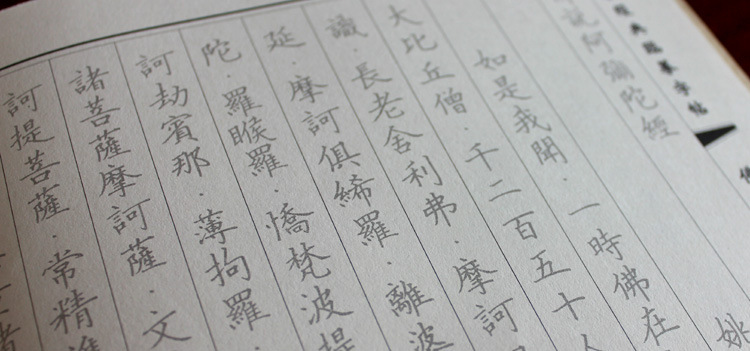 經典臨摹字帖
說阿彌陀經
如是我聞．一時佛在
大比丘僧．千二百五十人
識．長老舍利弗．摩訶
延．摩訶俱絺羅．離婆
陀．羅睺羅．憍梵波提
訶劫賓那．薄拘羅
諸菩薩摩訶薩．文
訶提菩薩．常精進